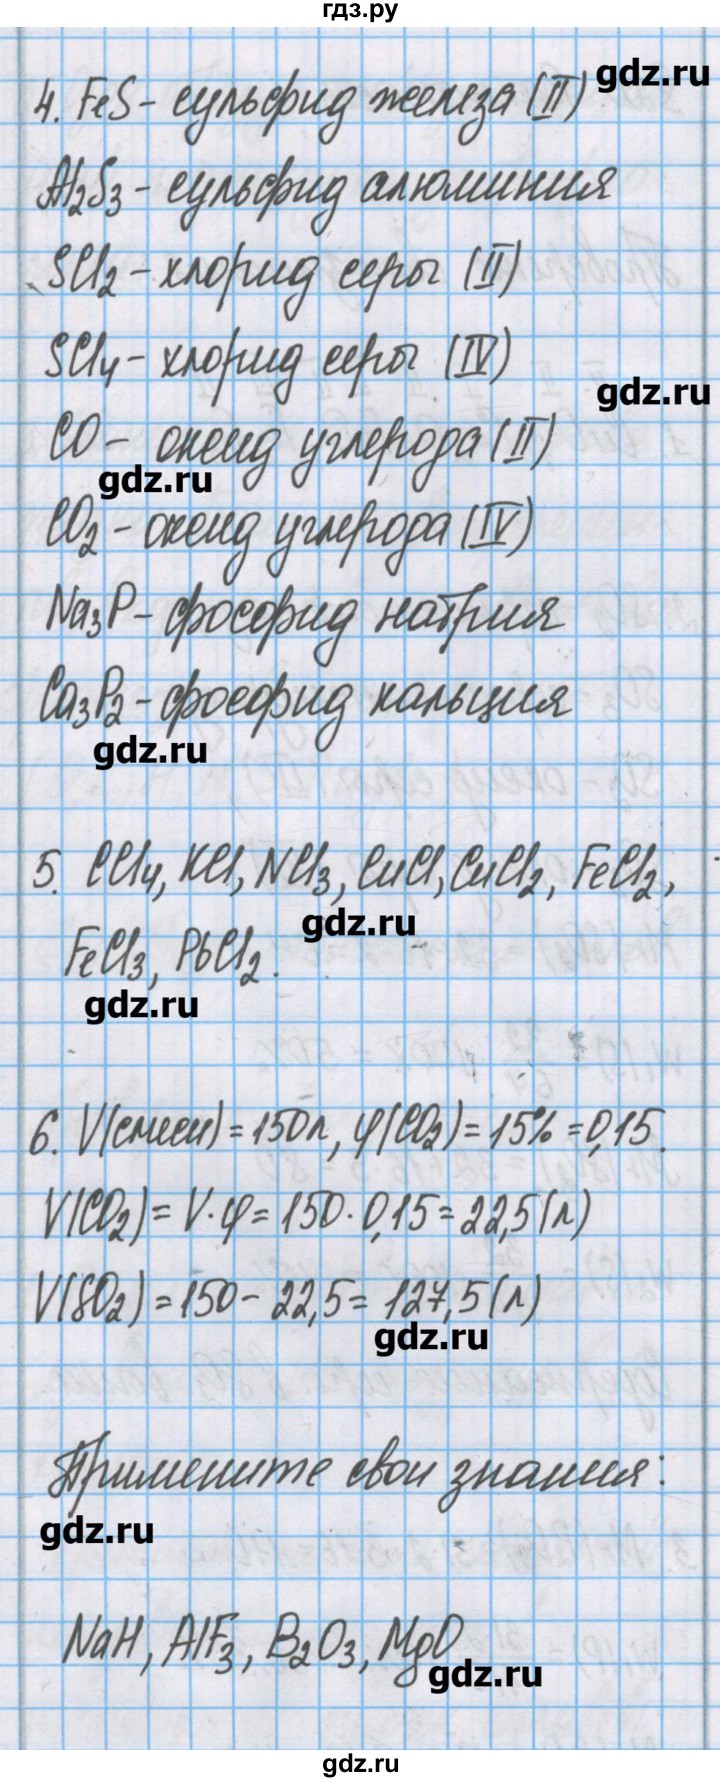 гдз.ру
gdz.ru
4. FeS - сульфид железа (II)
Al₂S₃ - сульфид алюминия
SCl₂ - хлорид серы (II)
SCl₄ - хлорид серы (IV)
gdz.ru
CO - оксид углерода (II)
gdz.ru
CO₂ - оксид углерода (IV)
Na₃P - фосфид натрия
Ca₃P₂ - фосфид кальция
gdz.ru
5. CCl₄, KCl, NCl₃, CuCl, CuCl₂, FeCl₂,
gdz.ru
FeCl₃, PbCl₂.
gdz.ru
6. V(смеси) = 150 л, φ(CO₂) = 15% = 0,15.
V(CO₂) = V · φ = 150 · 0,15 = 22,5 (л)
V(SO₂) = 150 - 22,5 = 127,5 (л)
gdz.ru
Примените свои знания:
gdz.ru
NaH, AlF₃, B₂O₃, MgO
gdz.ru
gdz.ru